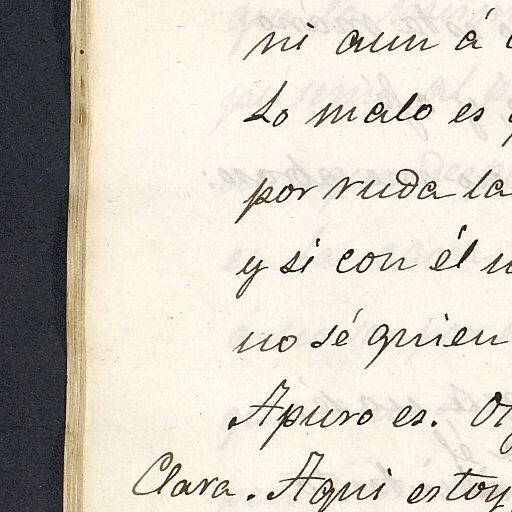 ni aun á
Lo malo es
por ruda la
y si con él
no sé quien
Apuro es.
Clara. Aqui estoy